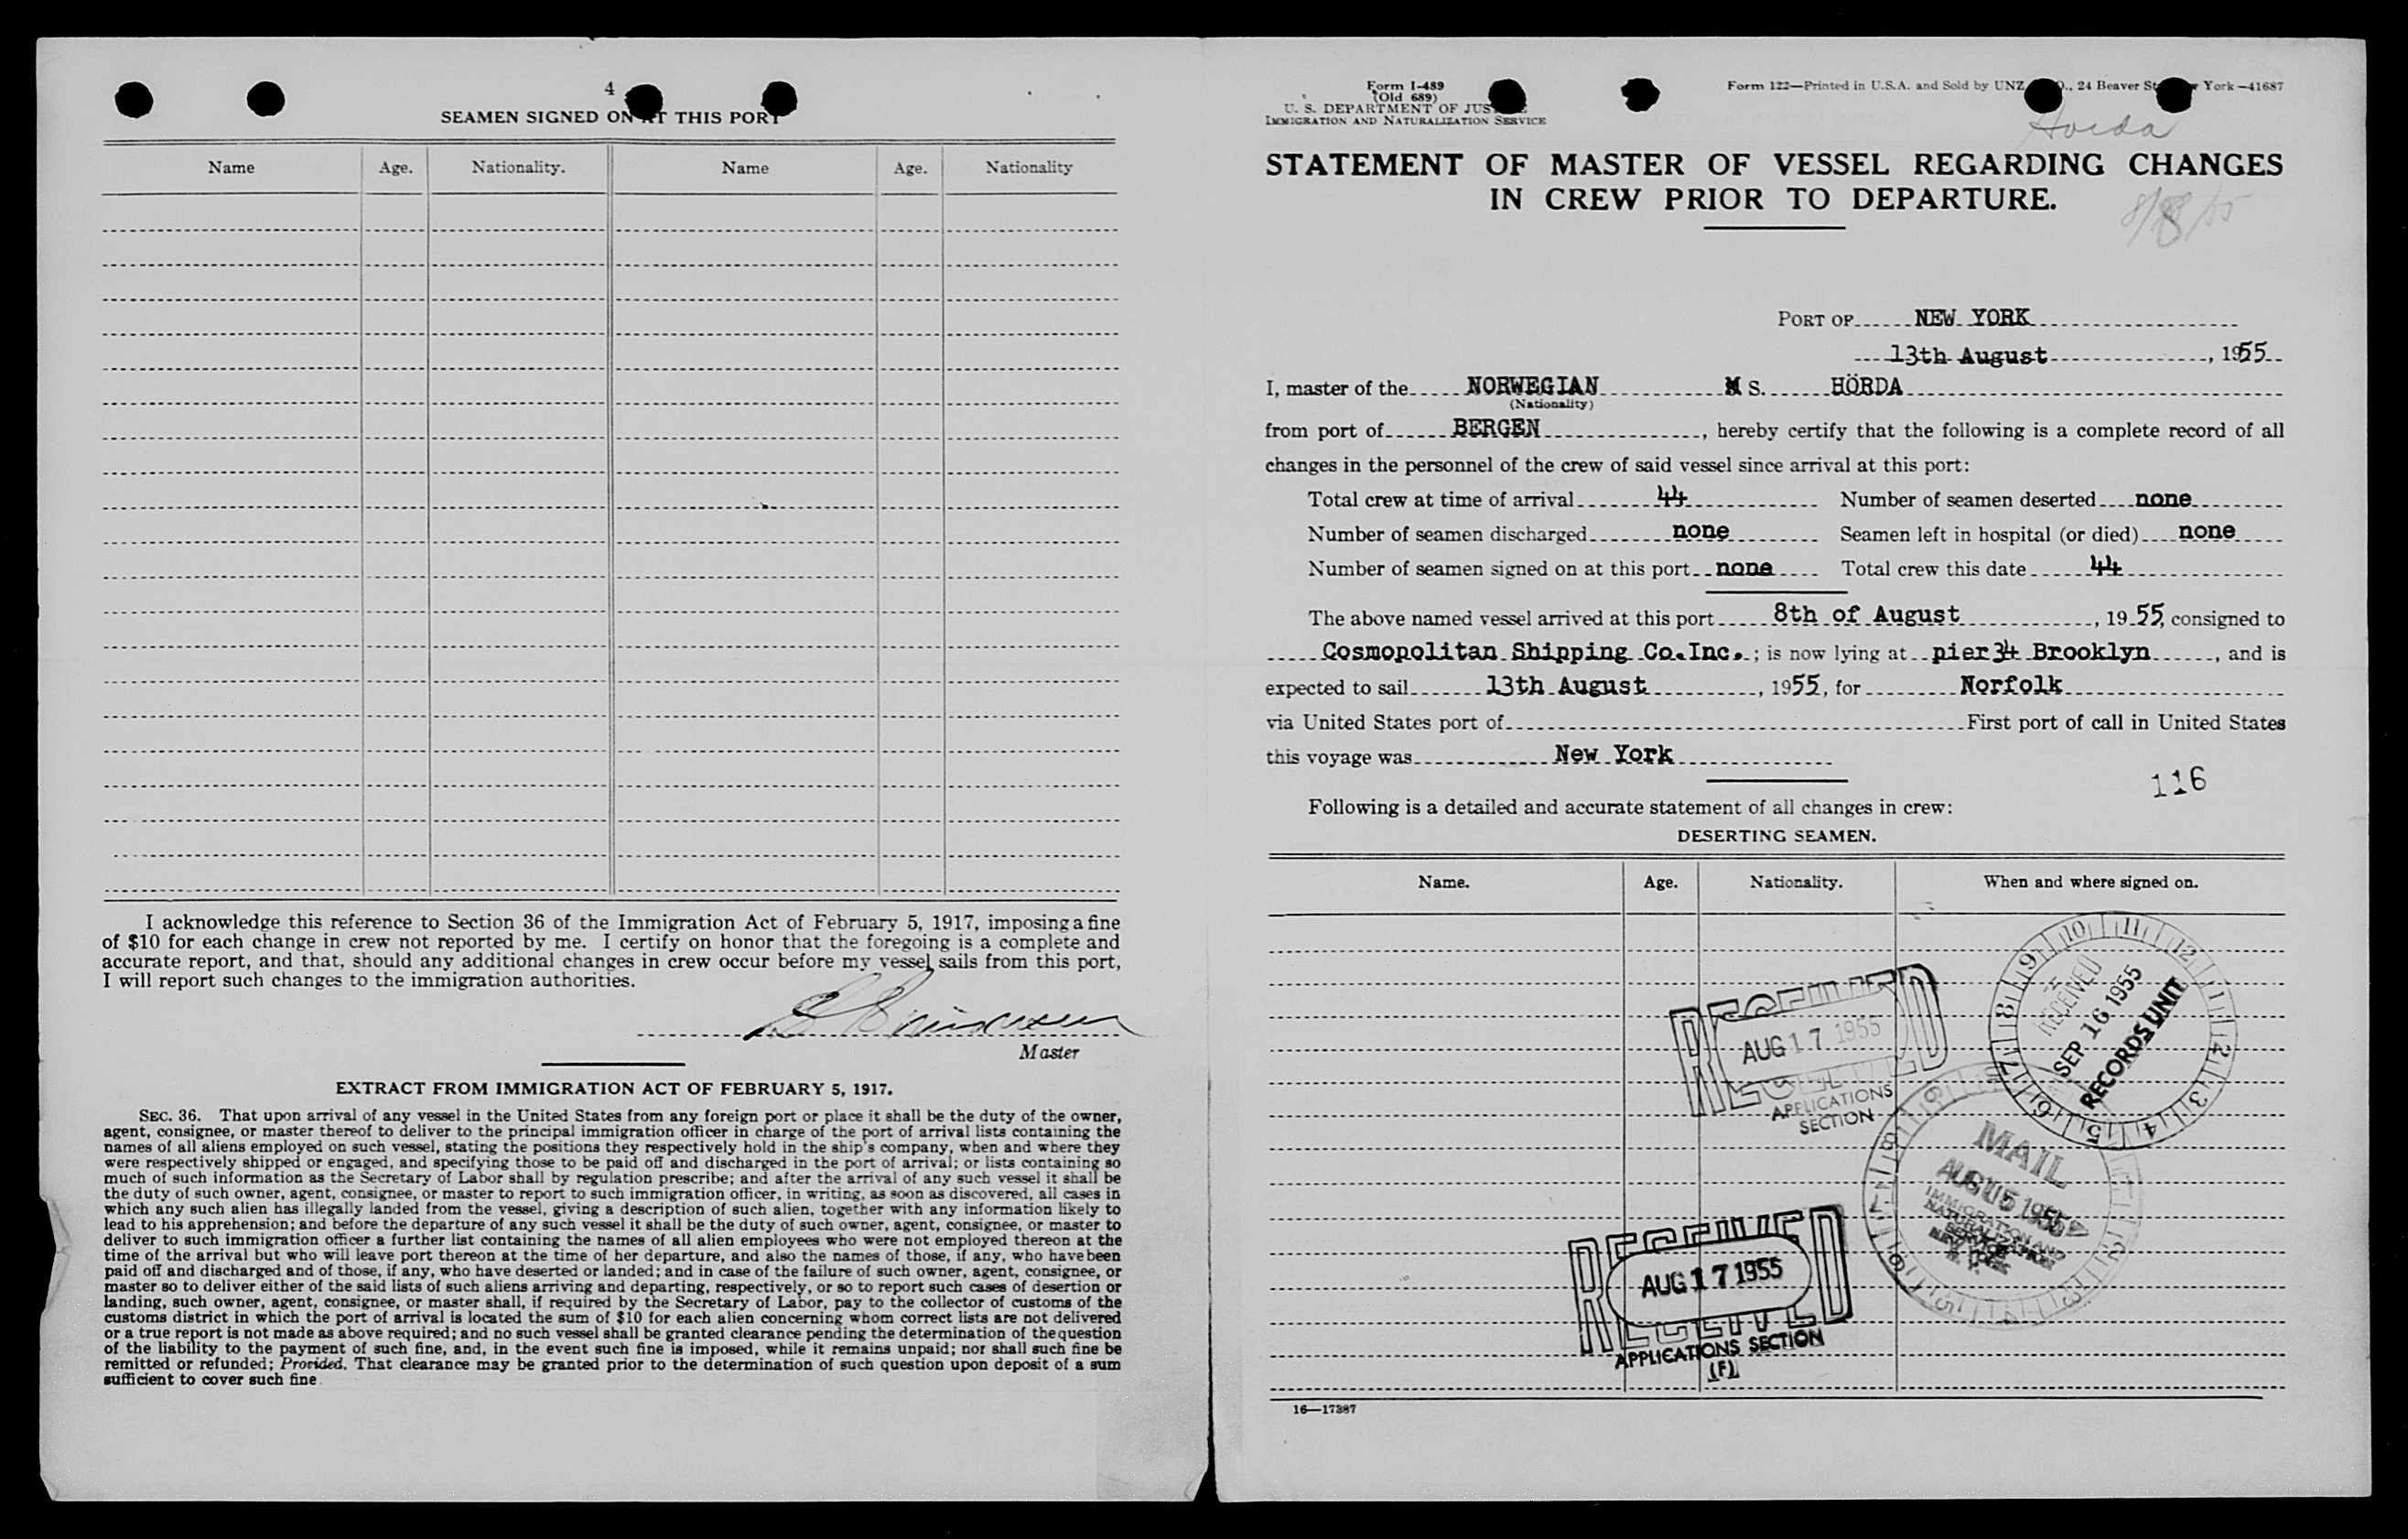 4
SEAMEN SIGNED ON AT THIS PORT
Name Age. Nationality. Name Age. Nationality
I acknowledge this reference to Section 36 of the Immigration Act of February 5, 1917, imposing a fine
of $10 for each change in crew not reported by me. I certify on honor that the foregoing is a complete and
accurate report, and that, should any additional changes in crew occur before my vessel sails from this port,
I will report such changes to the immigration authorities.
Master
EXTRACT FROM IMMIGRATION ACT OF FEBRUARY 5, 1917.
SEC. 36. That upon arrival of any vessel in the United States from any foreign port or place it shall be the duty of the owner,
agent, consignee, or master thereof to deliver to the principal immigration officer in charge of the port of arrival lists containing the
names of all aliens employed on such vessel, stating the positions they respectively hold in the ship's company, when and where they
were respectively shipped or engaged, and specifying those to be paid off and discharged in the port of arrival; or lists containing so
much of such information as the Secretary of Labor shall by regulation prescribe; and after the arrival of any such vessel it shall be
the duty of such owner, agent, consignee, or master to report to such immigration officer, in writing, as soon as discovered, all cases in
which any such alien has illegally landed from the vessel, giving a description of such alien, together with any information likely to
lead to his apprehension; and before the departure of any such vessel it shall be the duty of such owner, agent, consignee, or master to
deliver to such immigration officer a further list containing the names of all alien employees who were not employed thereon at the
time of the arrival but who will leave port thereon at the time of her departure, and also the names of those, if any, who have been
paid off and discharged and of those, if any, who have deserted or landed; and in case of the failure of such owner, agent, consignee, or
master so to deliver either of the said lists of such aliens arriving and departing, respectively, or so to report such cases of desertion or
landing, such owner, agent, consignee, or master shall, if required by the Secretary of Labor, pay to the collector of customs of the
customs district in which the port of arrival is located the sum of $10 for each alien concerning whom correct lists are not delivered
or a true report is not made as above required; and no such vessel shall be granted clearance pending the determination of the question
of the liability to the payment of such fine, and, in the event such fine is imposed, while it remains unpaid; nor shall such fine be
remitted or refunded; Provided, That clearance may be granted prior to the determination of such question upon deposit of a sum
sufficient to cover such fine.
Form I-489
(Old 689)
U. S. DEPARTMENT OF JUSTICE
IMMIGRATION AND NATURALIZATION SERVICE
Form 122—Printed in U.S.A. and Sold by UNZ 24 Beaver St York—41687
Horda
STATEMENT OF MASTER OF VESSEL REGARDING CHANGES
IN CREW PRIOR TO DEPARTURE.
PORT OF NEW YORK
13th August, 1955
I, master of the NORWEGIAN M S. HÖRDA
(Nationality)
from port of BERGEN, hereby certify that the following is a complete record of all
changes in the personnel of the crew of said vessel since arrival at this port:
Total crew at time of arrival 44 Number of seamen deserted none
Number of seamen discharged none Seamen left in hospital (or died) none
Number of seamen signed on at this port none Total crew this date 44
The above named vessel arrived at this port 8th of August, 1955, consigned to
Cosmopolitan Shipping Co.Inc.; is now lying at pier 34 Brooklyn, and is
expected to sail 13th August, 1955, for Norfolk
via United States port of First port of call in United States
this voyage was New York
116
Following is a detailed and accurate statement of all changes in crew:
DESERTING SEAMEN.
Name. Age. Nationality. When and where signed on.
RECEIVED
AUG 17 1955
APPLICATIONS
SECTION
9 10 11 12 1 2 3 4 5 6 7 8
RECEIVED
SEP 16 1955
RECORDS UNIT
MAIL
IMMIGRATION AND
NATURALIZATION
SERVICE
NEW YORK
RECEIVED
AUG 17 1955
APPLICATIONS SECTION
(F)
16—17387